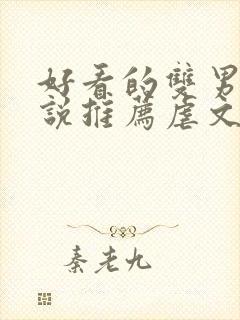 好看的雙男
說推薦虐文
秦老九